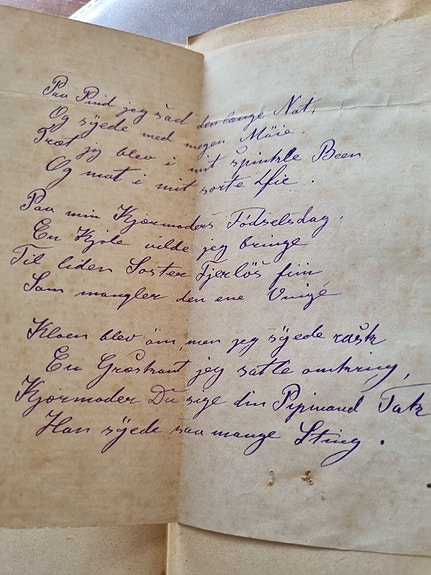 Paa Pind jeg sad den lange Nat,
Og syede med megen Möie.
Træt jeg blev i mit spinkle Been
Og mat i mit sorte Öie.
Paa min Kjærmoders Fødselsdag,
En Kjole vilde jeg bringe
Til liden Søster Fjerløs fiin
Som mangler den ene Vinge
Kloen blev öm, men jeg syede rask
En Græskant jeg satte omkring,
Kjærmoder Du sige din Pipmand Tak
Han syede saa mange Sting.